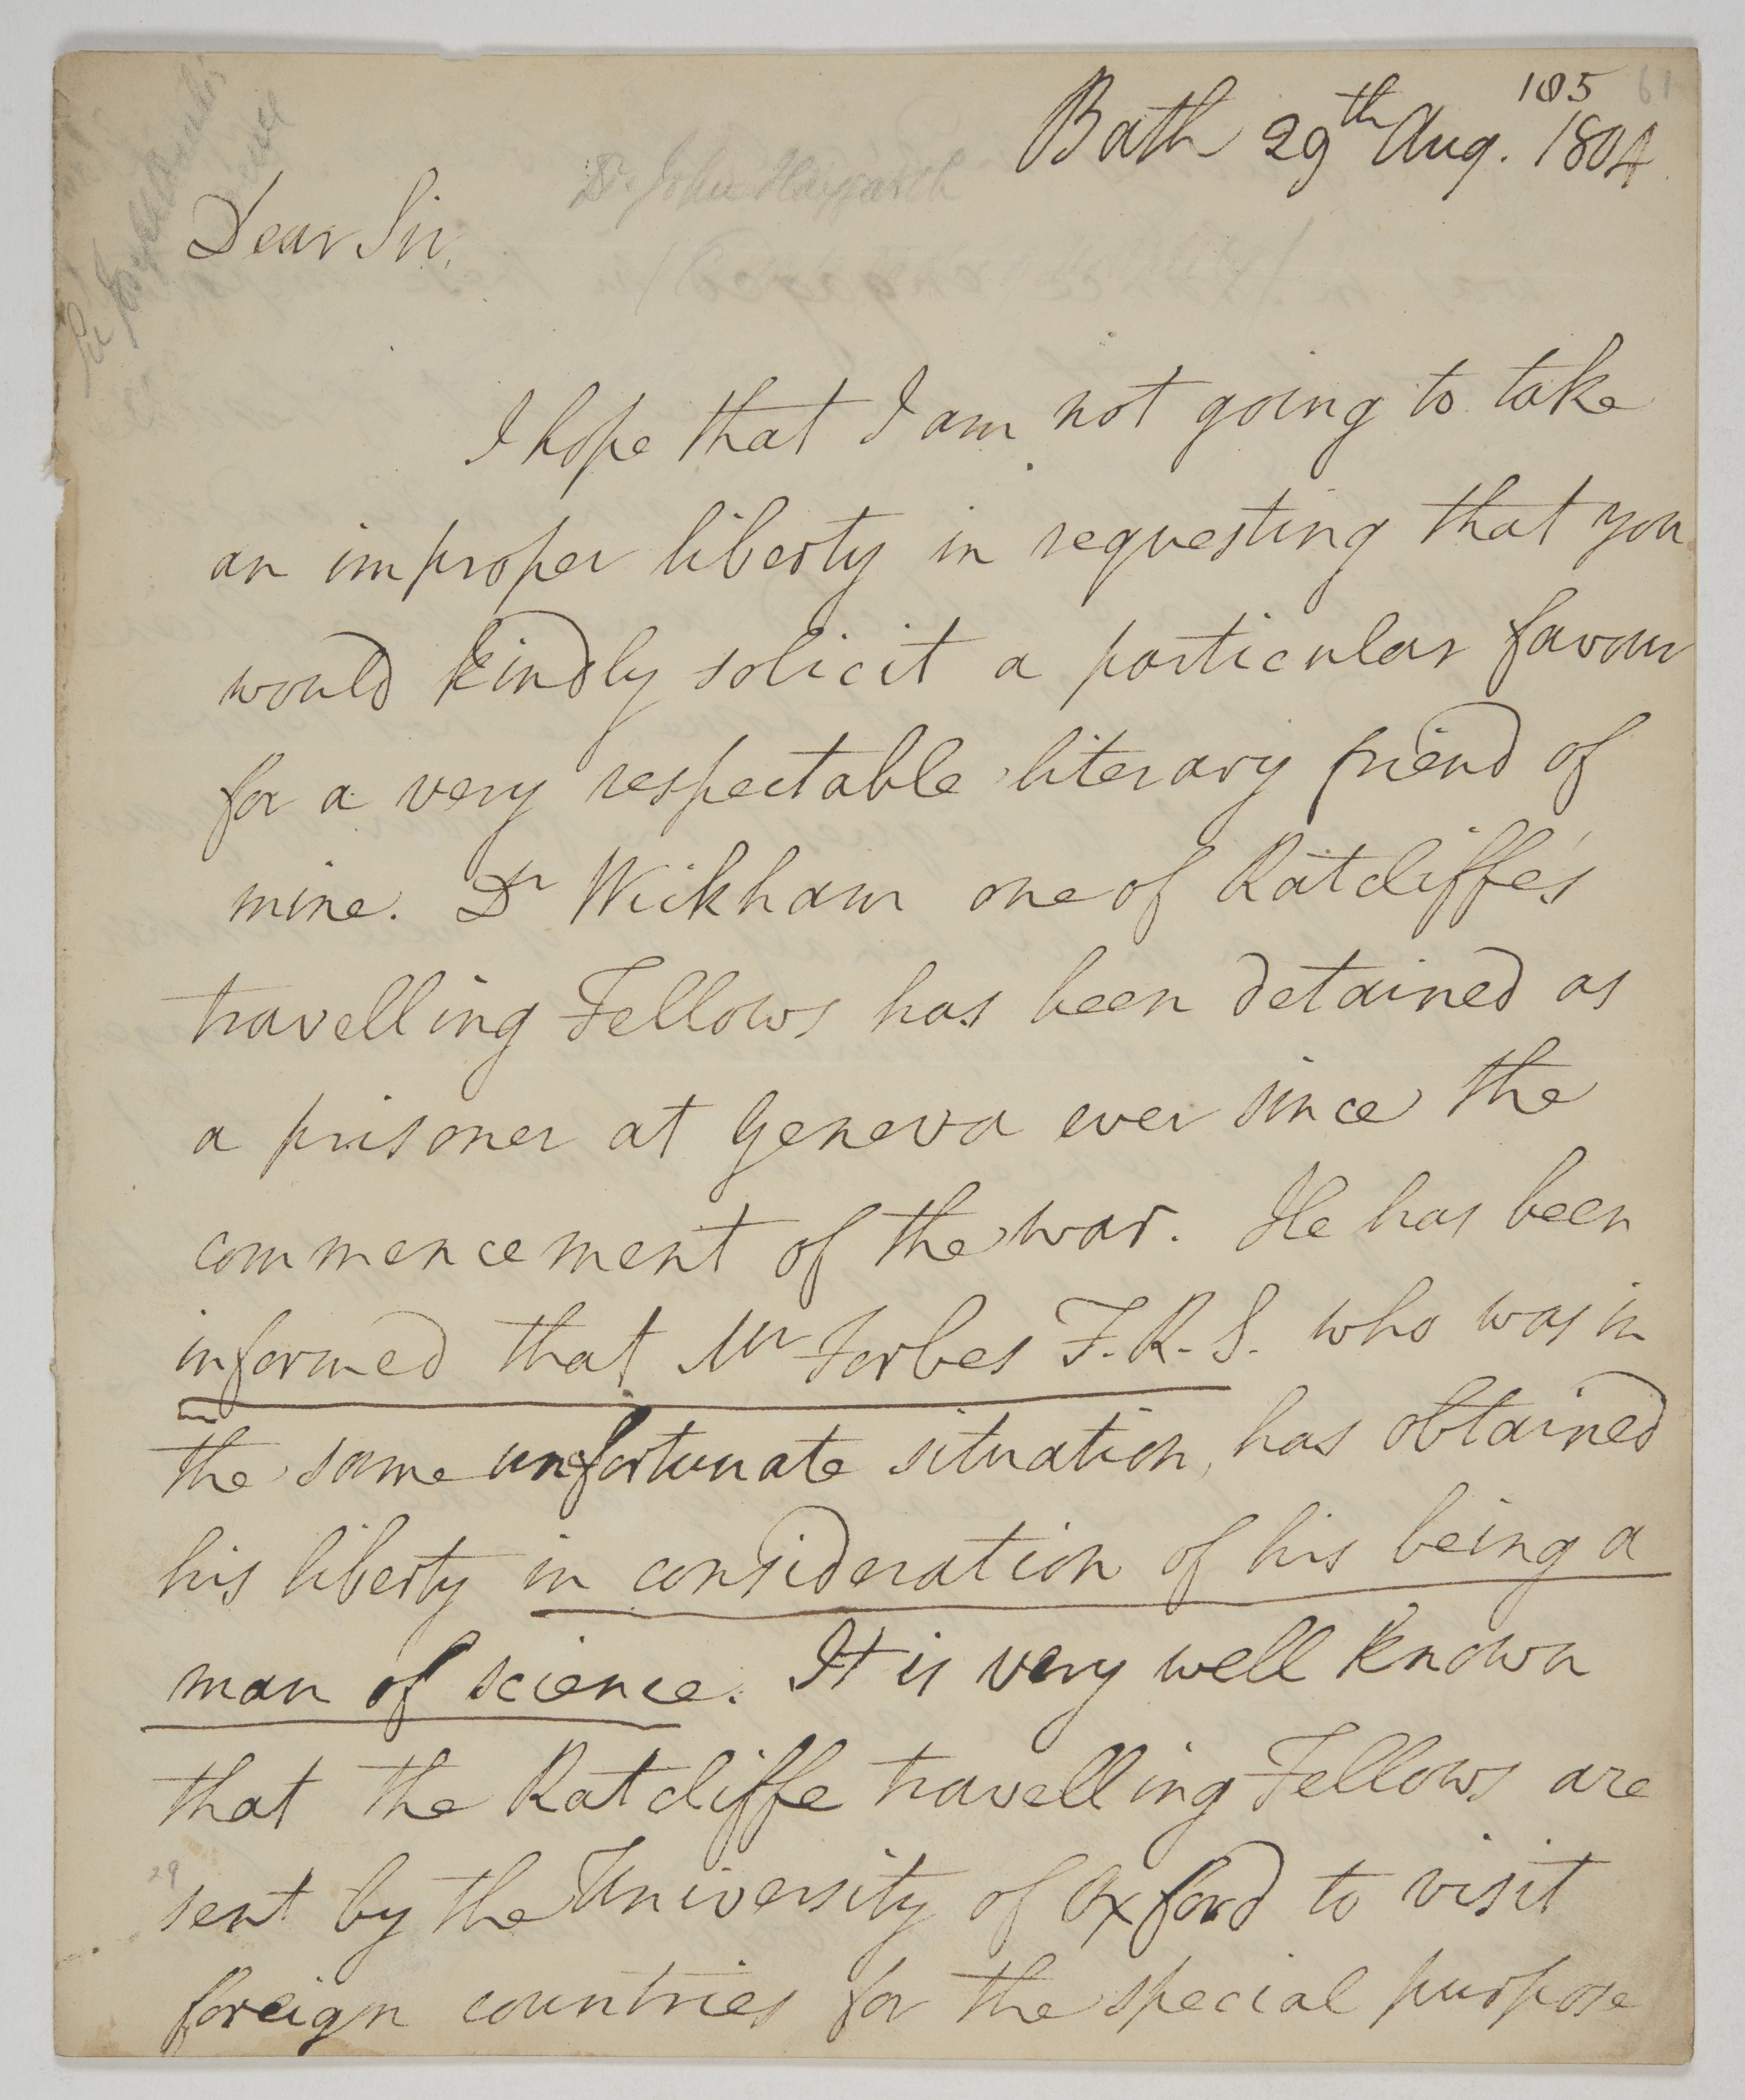 105 61
Bath 29th Aug. 1804
Dr John Haygarth
Dear Sir,
I hope that I am not going to take
an improper liberty in requesting that you
would kindly solicit a particular favour
for a very respectable literary friend of
mine. Dr Wickham one of Ratcliffe's
travelling Fellows has been detained as
a prisoner at Geneva ever since the
commencement of the war. He has been
informed that Mr Forbes F.R.S. who was in
the same unfortunate situation, has obtained
his liberty in consideration of his being a
man of science. It is very well known
that the Ratcliffe travelling Fellows are
29
sent by the University of Oxford to visit
foreign countries for the special purpose